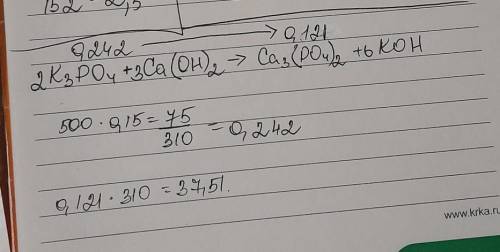 152 2,5
0,242 → 0,121
2K₃PO₄ + 3Ca(OH)₂ → Ca₃(PO₄)₂ + 6KOH
500 · 0,15 = 75/310 = 0,242
0,121 · 310 = 37,51.
www.krka.ru